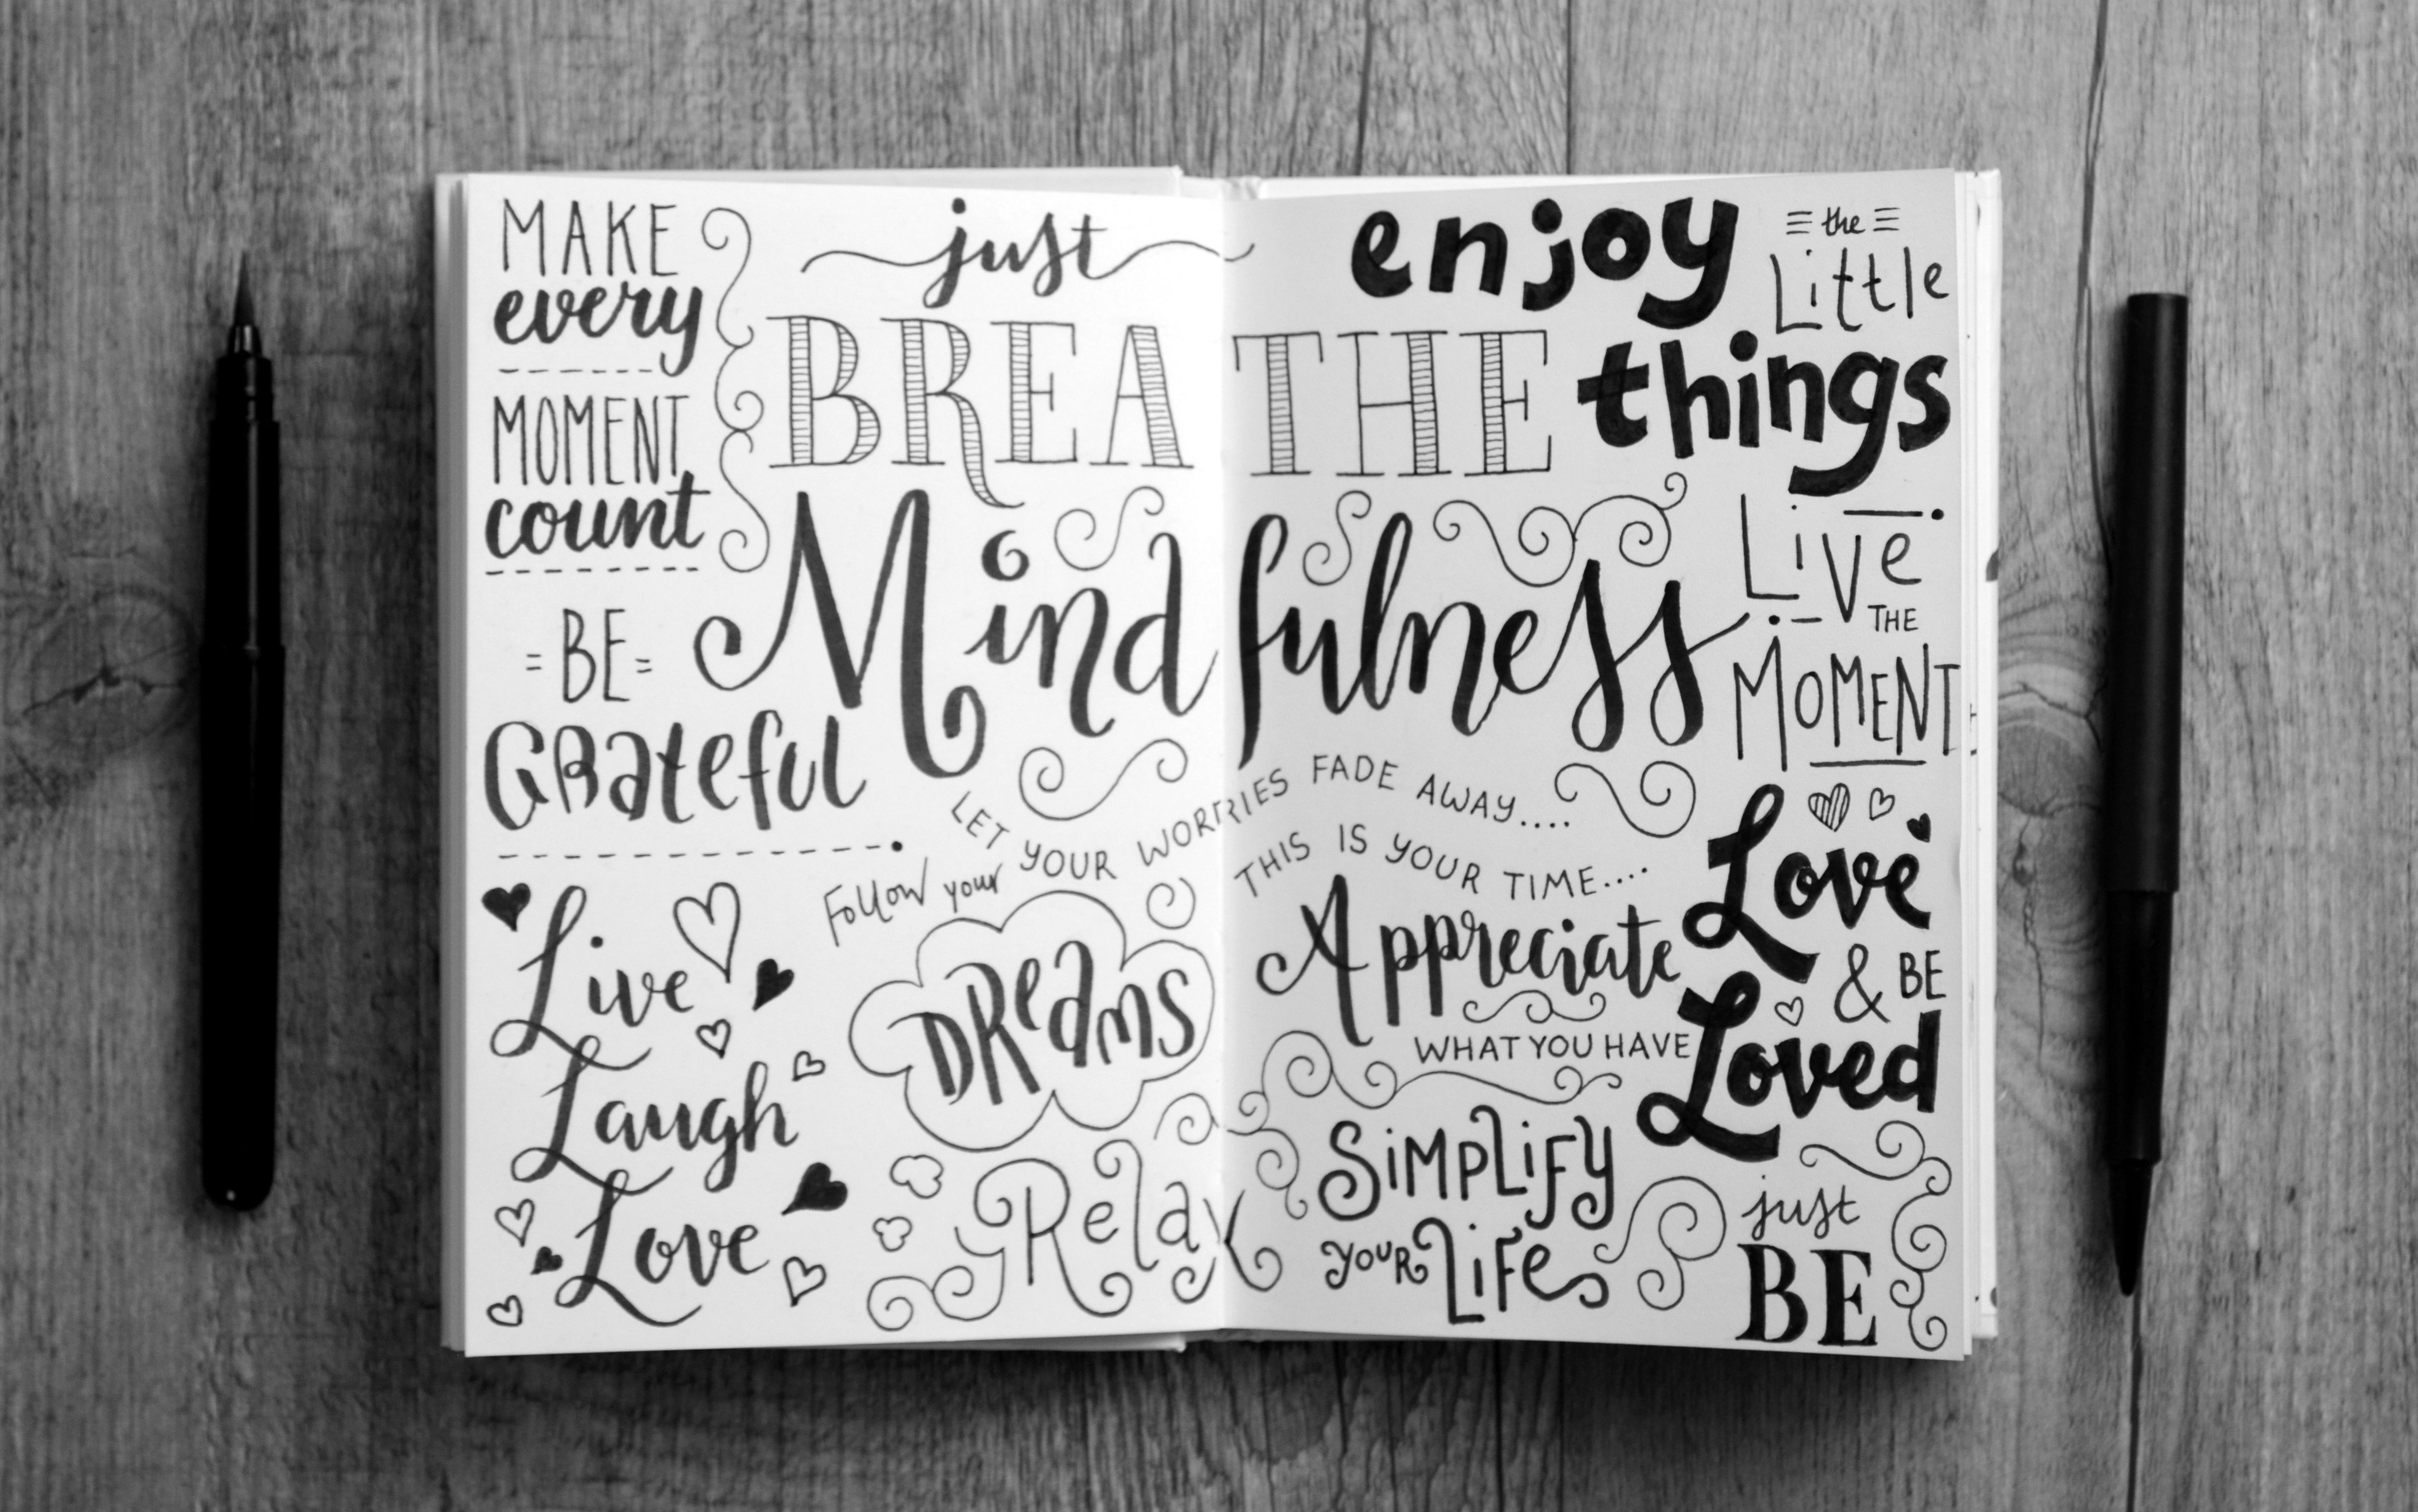 MAKE
every
MOMENT
count
just
BREATHE
enjoy
the
Little
things
Mindfulness
BE
GRateful
Live
THE
MOMENT
LET YOUR WORRIES FADE AWAY....
THIS IS YOUR TIME....
Follow your
DReams
Live
Laugh
Love
Relax
Appreciate
WHAT YOU HAVE
SiMPLiFy
youR LiFe
Love
& BE
Loved
just
BE